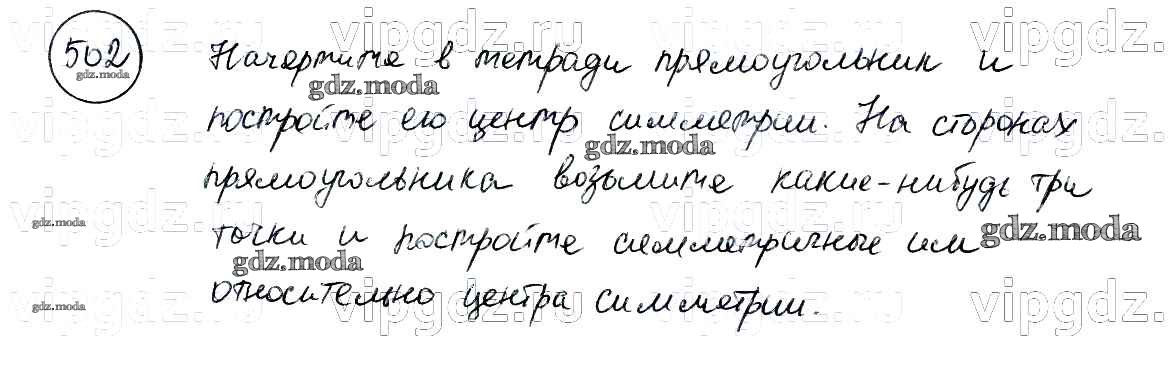 502 Начертите в тетради прямоугольник и
gdz.moda gdz.moda
постройте его центр симметрии. На сторонах
gdz.moda
прямоугольника возьмите какие-нибудь три
gdz.moda
точки и постройте симметричные им gdz.moda
gdz.moda
относительно центра симметрии.
gdz.moda
vipgdz.ru vipgdz.ru vipgdz.ru vipgdz.ru
vipgdz.ru vipgdz.ru vipgdz.ru vipgdz.ru
vipgdz.ru vipgdz.ru vipgdz.ru vipgdz.ru
vipgdz.ru vipgdz.ru vipgdz.ru vipgdz.ru